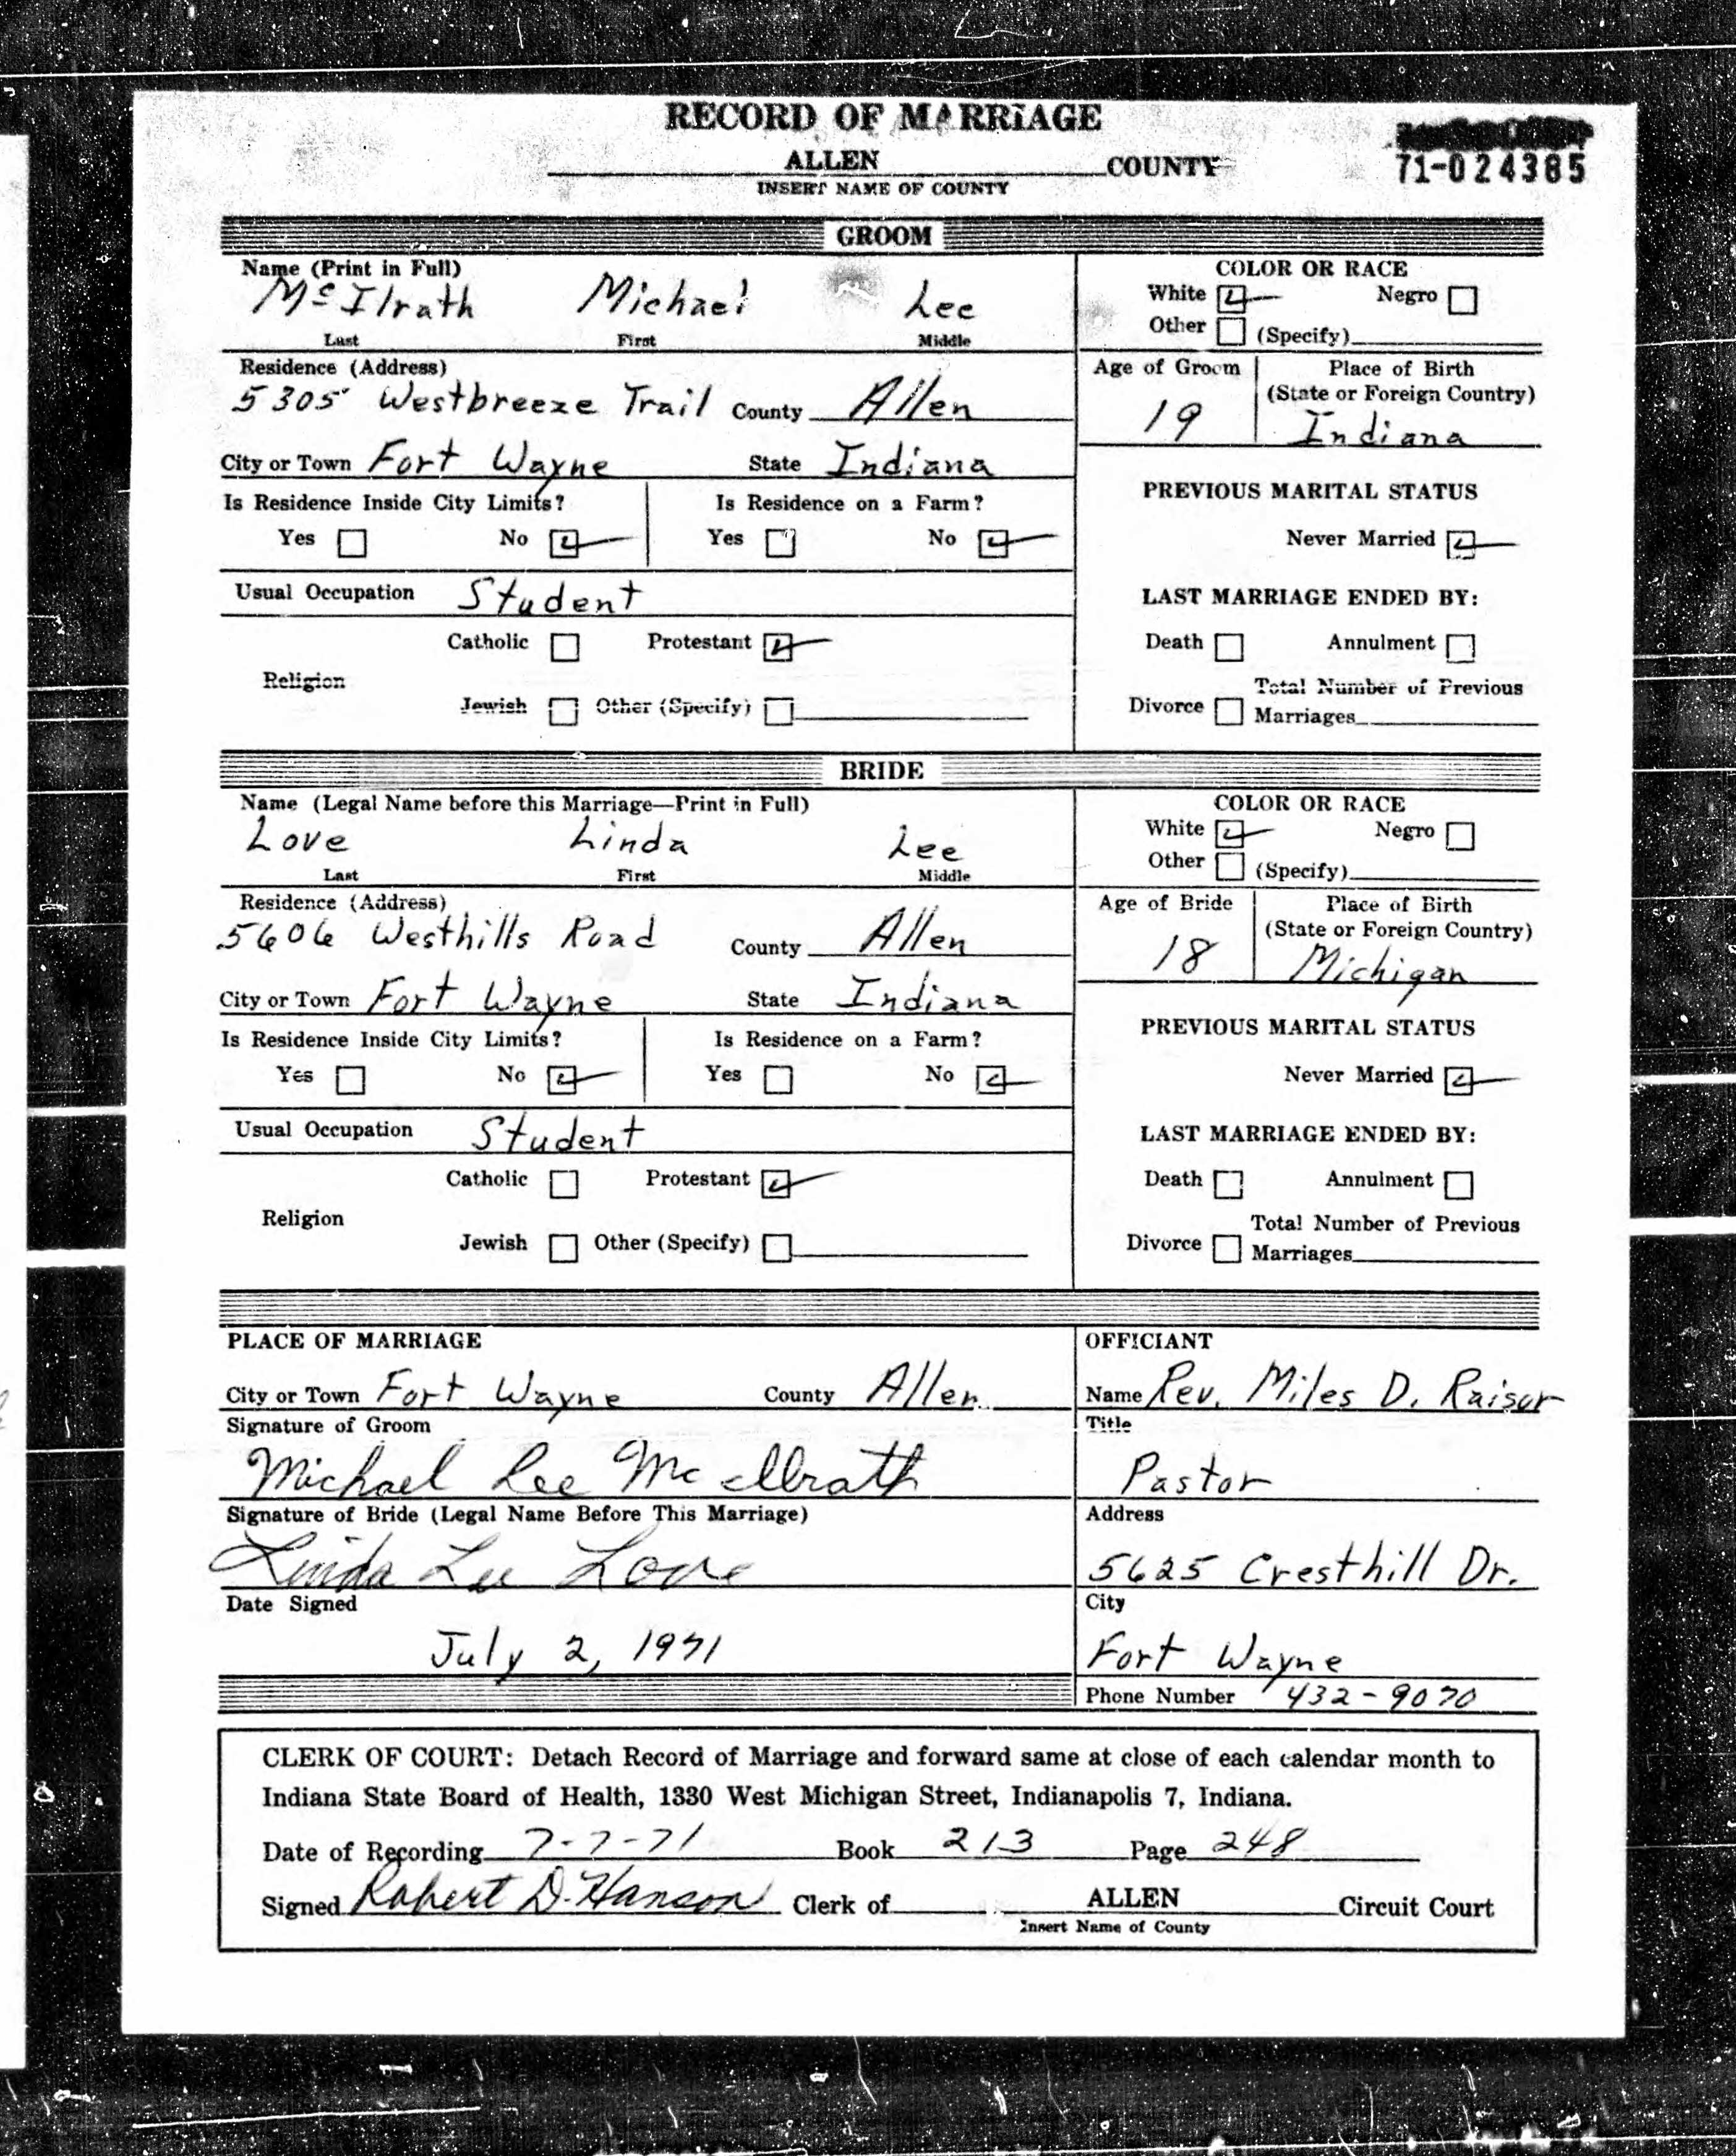 RECORD OF MARRIAGE
ALLEN COUNTY
INSERT NAME OF COUNTY
71-024385
GROOM
Name (Print in Full)
McIlrath Michael Lee
Last First Middle
COLOR OR RACE
White Negro
Other (Specify)
Residence (Address)
5305 Westbreeze Trail County Allen
City or Town Fort Wayne State Indiana
Age of Groom
19
Place of Birth
(State or Foreign Country)
Indiana
Is Residence Inside City Limits?
Yes No
Is Residence on a Farm?
Yes No
PREVIOUS MARITAL STATUS
Never Married
Usual Occupation Student
LAST MARRIAGE ENDED BY:
Catholic Protestant
Religion
Jewish Other (Specify)
Death Annulment
Divorce Total Number of Previous
Marriages
BRIDE
Name (Legal Name before this Marriage—Print in Full)
Love Linda Lee
Last First Middle
COLOR OR RACE
White Negro
Other (Specify)
Residence (Address)
5606 Westhills Road County Allen
City or Town Fort Wayne State Indiana
Age of Bride
18
Place of Birth
(State or Foreign Country)
Michigan
Is Residence Inside City Limits?
Yes No
Is Residence on a Farm?
Yes No
PREVIOUS MARITAL STATUS
Never Married
Usual Occupation Student
LAST MARRIAGE ENDED BY:
Catholic Protestant
Religion
Jewish Other (Specify)
Death Annulment
Divorce Total Number of Previous
Marriages
PLACE OF MARRIAGE
City or Town Fort Wayne County Allen
Signature of Groom
Michael Lee McIlrath
Signature of Bride (Legal Name Before This Marriage)
Linda Lee Love
Date Signed
July 2, 1971
OFFICIANT
Name Rev. Miles D. Raisor
Title
Pastor
Address
5625 Cresthill Dr.
City
Fort Wayne
Phone Number 432-9070
CLERK OF COURT: Detach Record of Marriage and forward same at close of each calendar month to
Indiana State Board of Health, 1330 West Michigan Street, Indianapolis 7, Indiana.
Date of Recording 7-7-71 Book 213 Page 248
Signed Robert D. Hanson Clerk of ALLEN Circuit Court
Insert Name of County